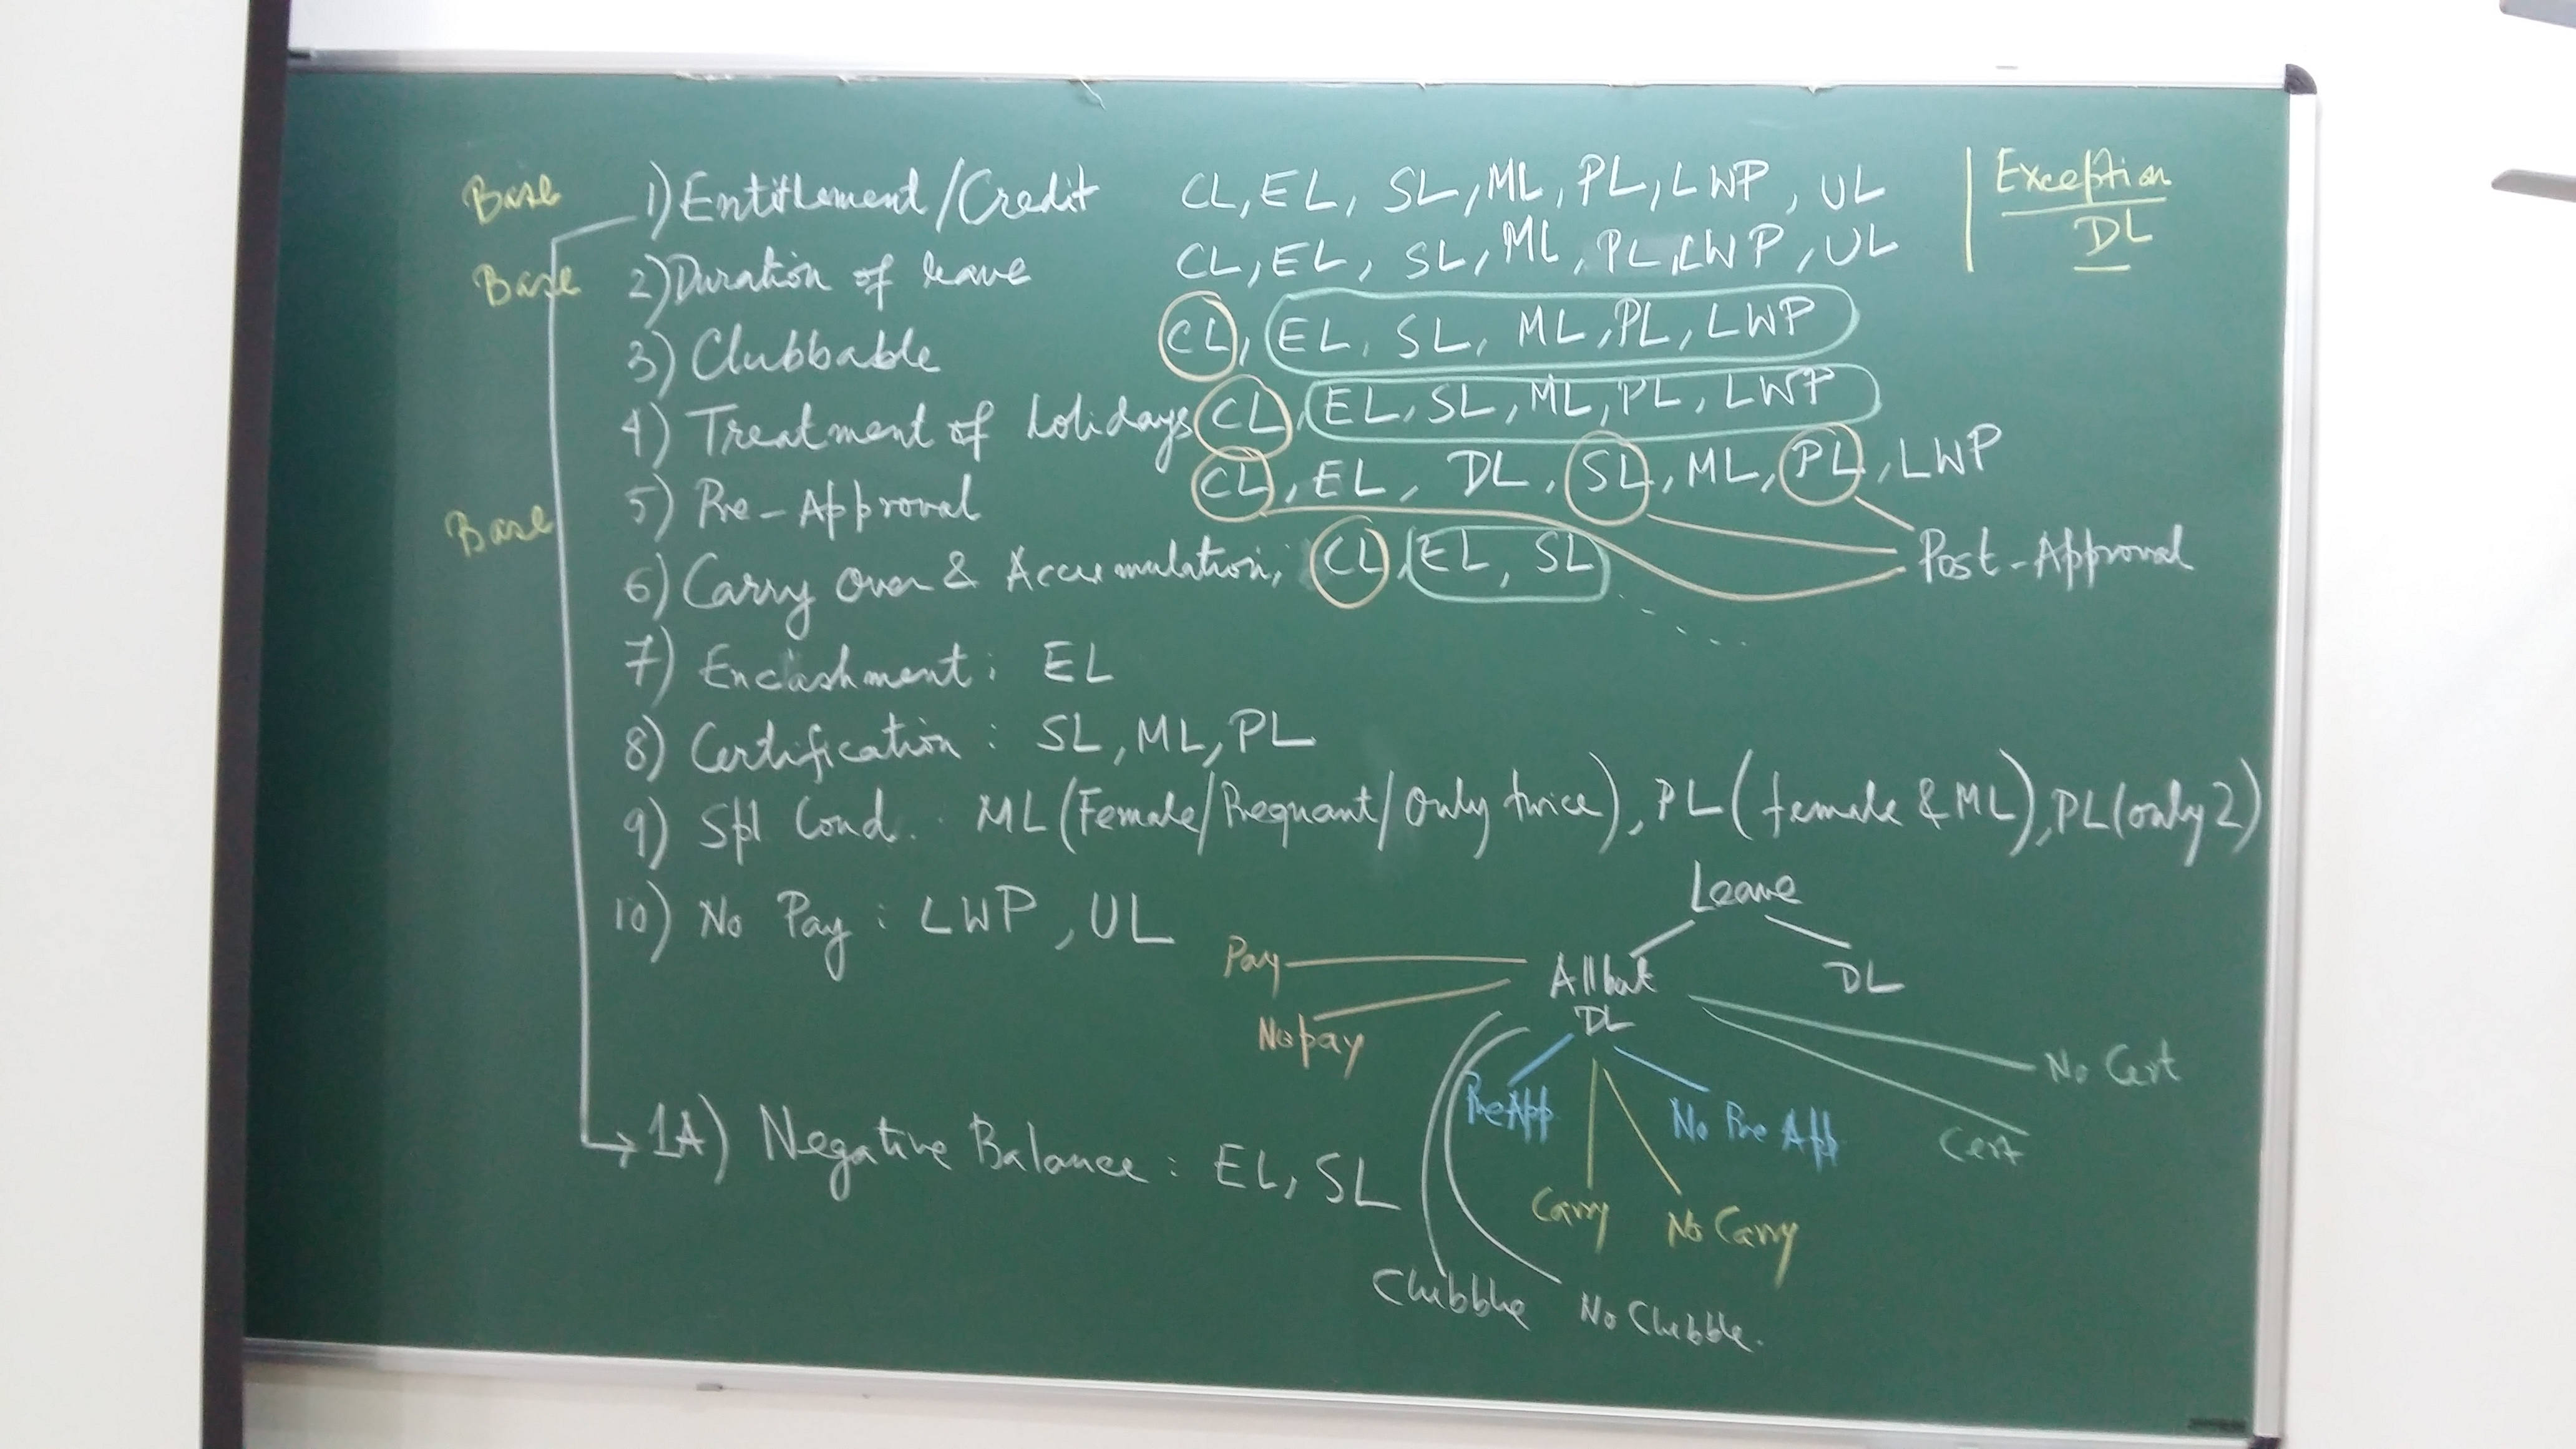 Base 1) Entitlement/Credit CL, EL, SL, ML, PL, LWP, UL Exception
DL
Base 2) Duration of leave CL, EL, SL, ML, PL, LWP, UL
3) Clubbable CL, EL, SL, ML, PL, LWP
4) Treatment of holidays CL, EL, SL, ML, PL, LWP
Base 5) Pre-Approval CL, EL, DL, SL, ML, PL, LWP
Post-Approval
6) Carry Over & Accumulation; CL, EL, SL
7) Encashment: EL
8) Certification: SL, ML, PL
9) Spl Cond. : ML (Female/Pregnant/Only twice), PL (female & ML), PL (only 2)
10) No Pay: LWP, UL
Leave
All but DL
DL
Pay
No pay
Pre App
No Pre App
No Cert
Cert
Carry
No Carry
Clubble
No Clubble.
1A) Negative Balance: EL, SL